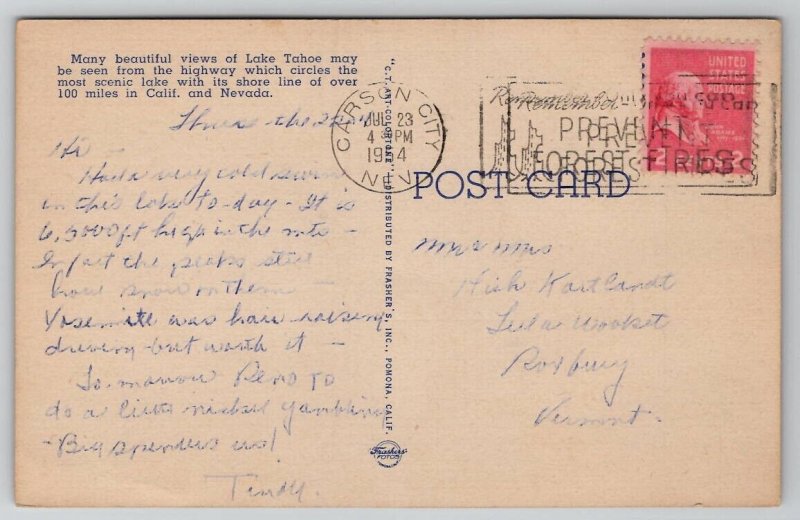 Many beautiful views of Lake Tahoe may
be seen from the highway which circles the
most scenic lake with its shore line of over
100 miles in Calif. and Nevada.
Thurs the
Hi –
Had a very cold swim
in this lake to-day – It is
6,000 ft high in the mts –
In fact the peaks still
have snow on them –
Yosemite was hair raising
driving but worth it –
To-morrow Reno to
do a little nickel gambling
– Big spenders us!
"C.T. ART-COLORTONE" DISTRIBUTED BY FRASHER'S, INC., POMONA, CALIF.
Frashers
FOTOS
CARSON CITY
JUL 23
4 PM
1954
NEV.
Remember
PREVENT
FOREST FIRES
UNITED
STATES
POSTAGE
JOHN
ADAMS
2 ¢ 2
POST CARD
Mr & Mrs
Kortlandt
Roxbury
Vermont